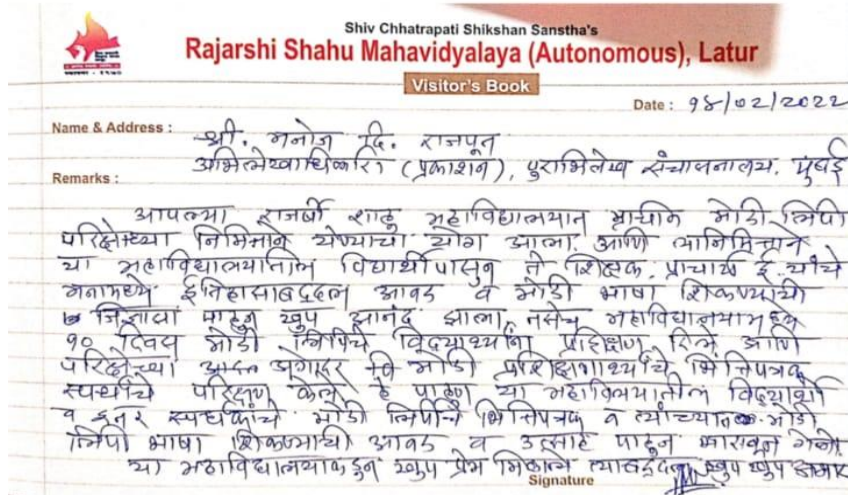 Shiv Chhatrapati Shikshan Sanstha's
Rajarshi Shahu Mahavidyalaya (Autonomous), Latur
Visitor's Book
Date : १४/०२/२०२२
Name & Address : श्री. मनोज दि. राजपूत
अभिलेखाधिकारी (प्रकाशन), पुराभिलेख संचालनालय, मुंबई
Remarks :
आपल्या राजर्षी शाहू महाविद्यालयात प्राचीन मोडी लिपी
परिक्षेच्या निमित्ताने येण्याचा योग आला. आणि त्यानिमित्ताने
या महाविद्यालयातील विद्यार्थीपासुन ते शिक्षक, प्राचार्य ई. यांचे
मनामध्ये ईतिहासाबद्दल आवड व मोडी भाषा शिकण्याची
जिज्ञासा पाहून खुप आनंद झाला. तसेच महाविद्यालयामध्ये
१० दिवस मोडी लिपीचे विद्यार्थ्यांना प्रशिक्षण दिले आणि
परिक्षेच्या मोडी प्रशिक्षणार्थ्यांचे भित्तिपत्रक
स्पर्धाचे परिक्षण केले. हे पाहुण या महाविद्यालयातील विद्यार्थी
व इतर स्पर्धकांचे मोडी लिपीचे भित्तिपत्रक व त्यांच्यात मोडी
लिपी भाषा शिकण्याची आवड व उत्साह पाहून भारावून गेलो.
या महाविद्यालयाकडुन खुप प्रेम मिळाले त्याबद्दल खुप खुप आभार
Signature